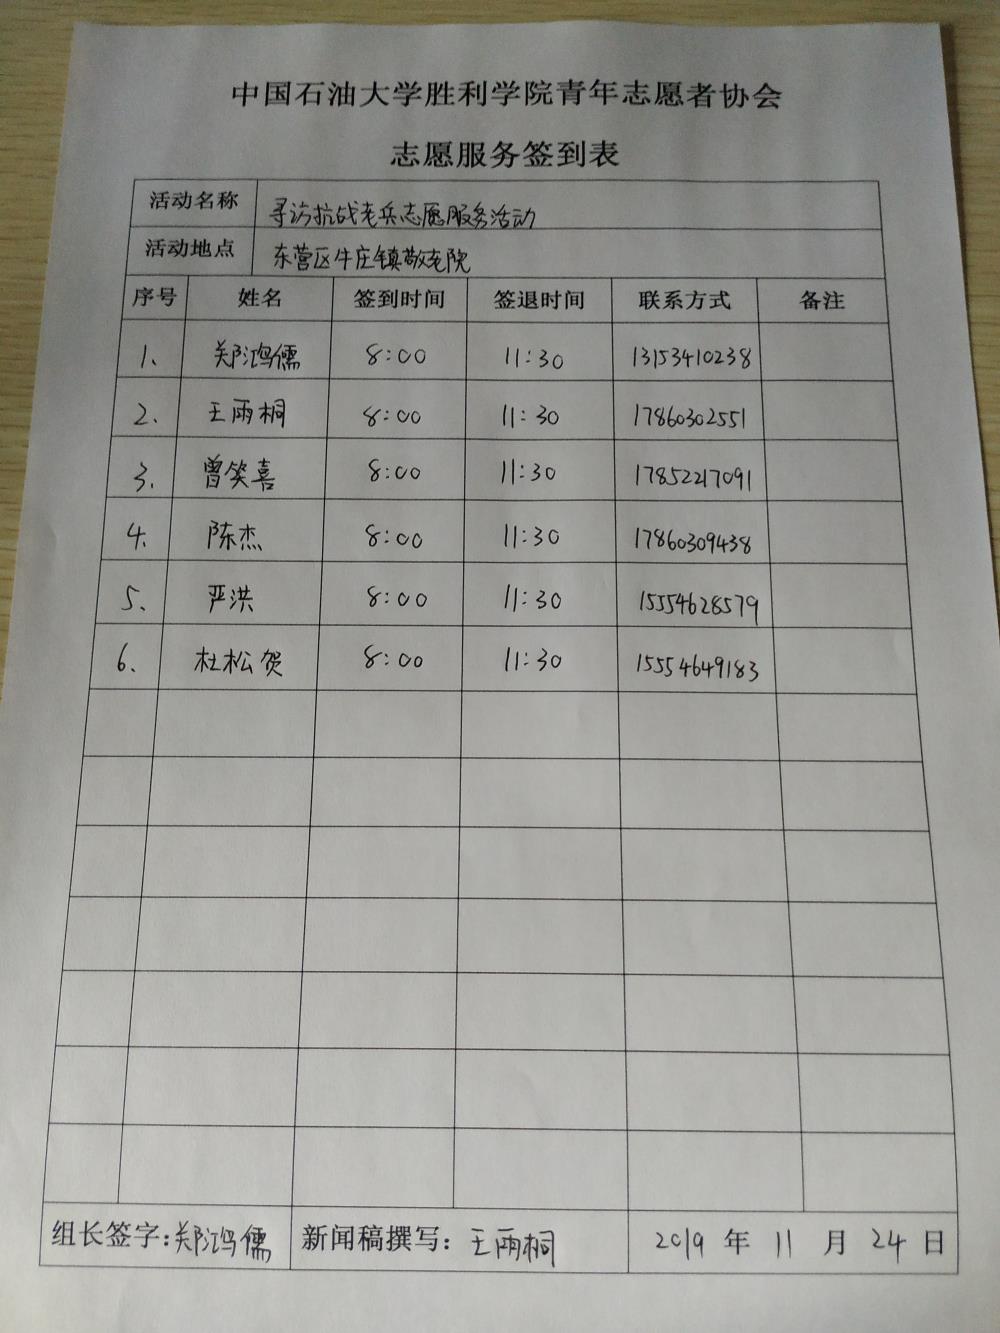 中国石油大学胜利学院青年志愿者协会
志愿服务签到表
活动名称 寻访抗战老兵志愿服务活动
活动地点 东营区牛庄镇敬老院
序号 姓名 签到时间 签退时间 联系方式 备注
1、 郑鸿儒 8:00 11:30 13153410238
2、 王雨桐 8:00 11:30 17860302551
3、 曾笑喜 8:00 11:30 17852217091
4、 陈杰 8:00 11:30 17860309438
5、 严洪 8:00 11:30 15554628579
6、 杜松贺 8:00 11:30 15554649183
组长签字:郑鸿儒 新闻稿撰写:王雨桐 2019 年 11 月 24 日